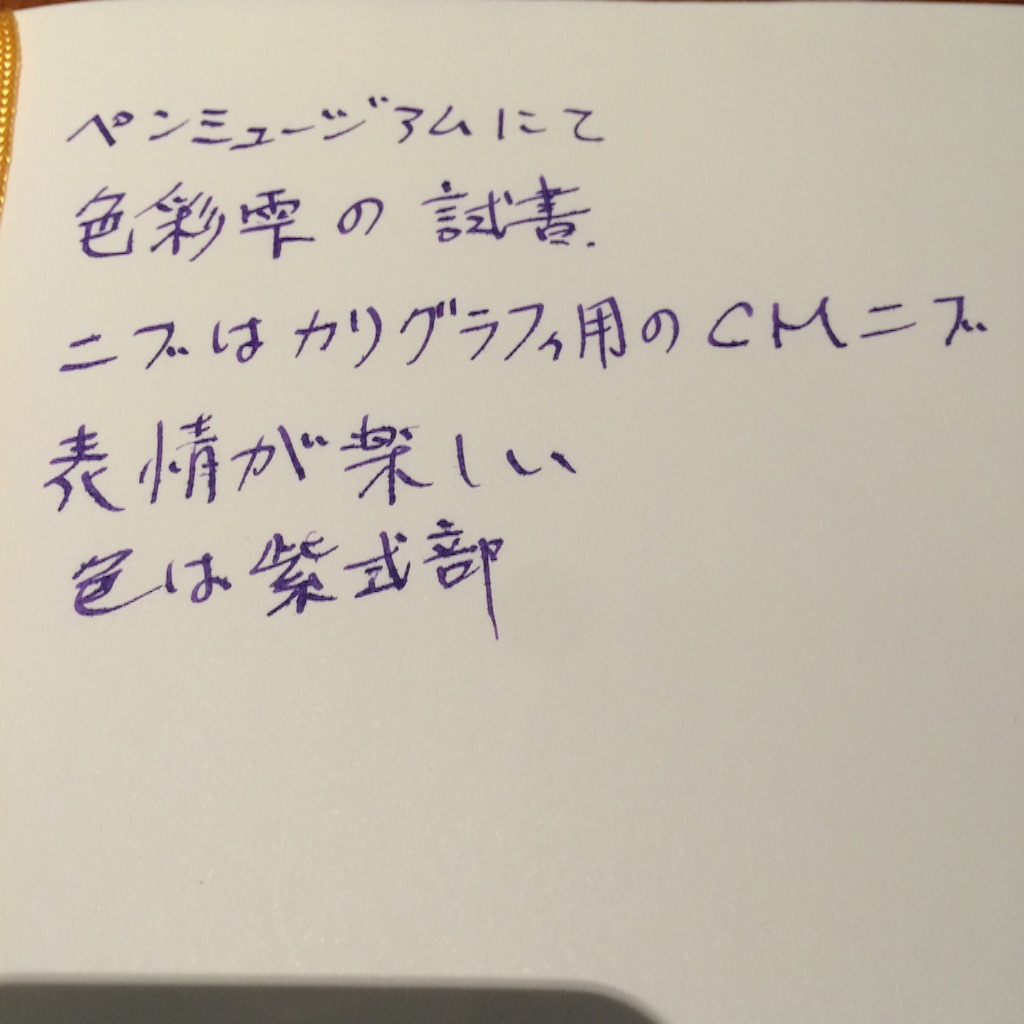 ペンミュージアムにて
色彩雫の試書.
ニブはカリグラフィ用のCMニブ
表情が楽しい
色は紫式部